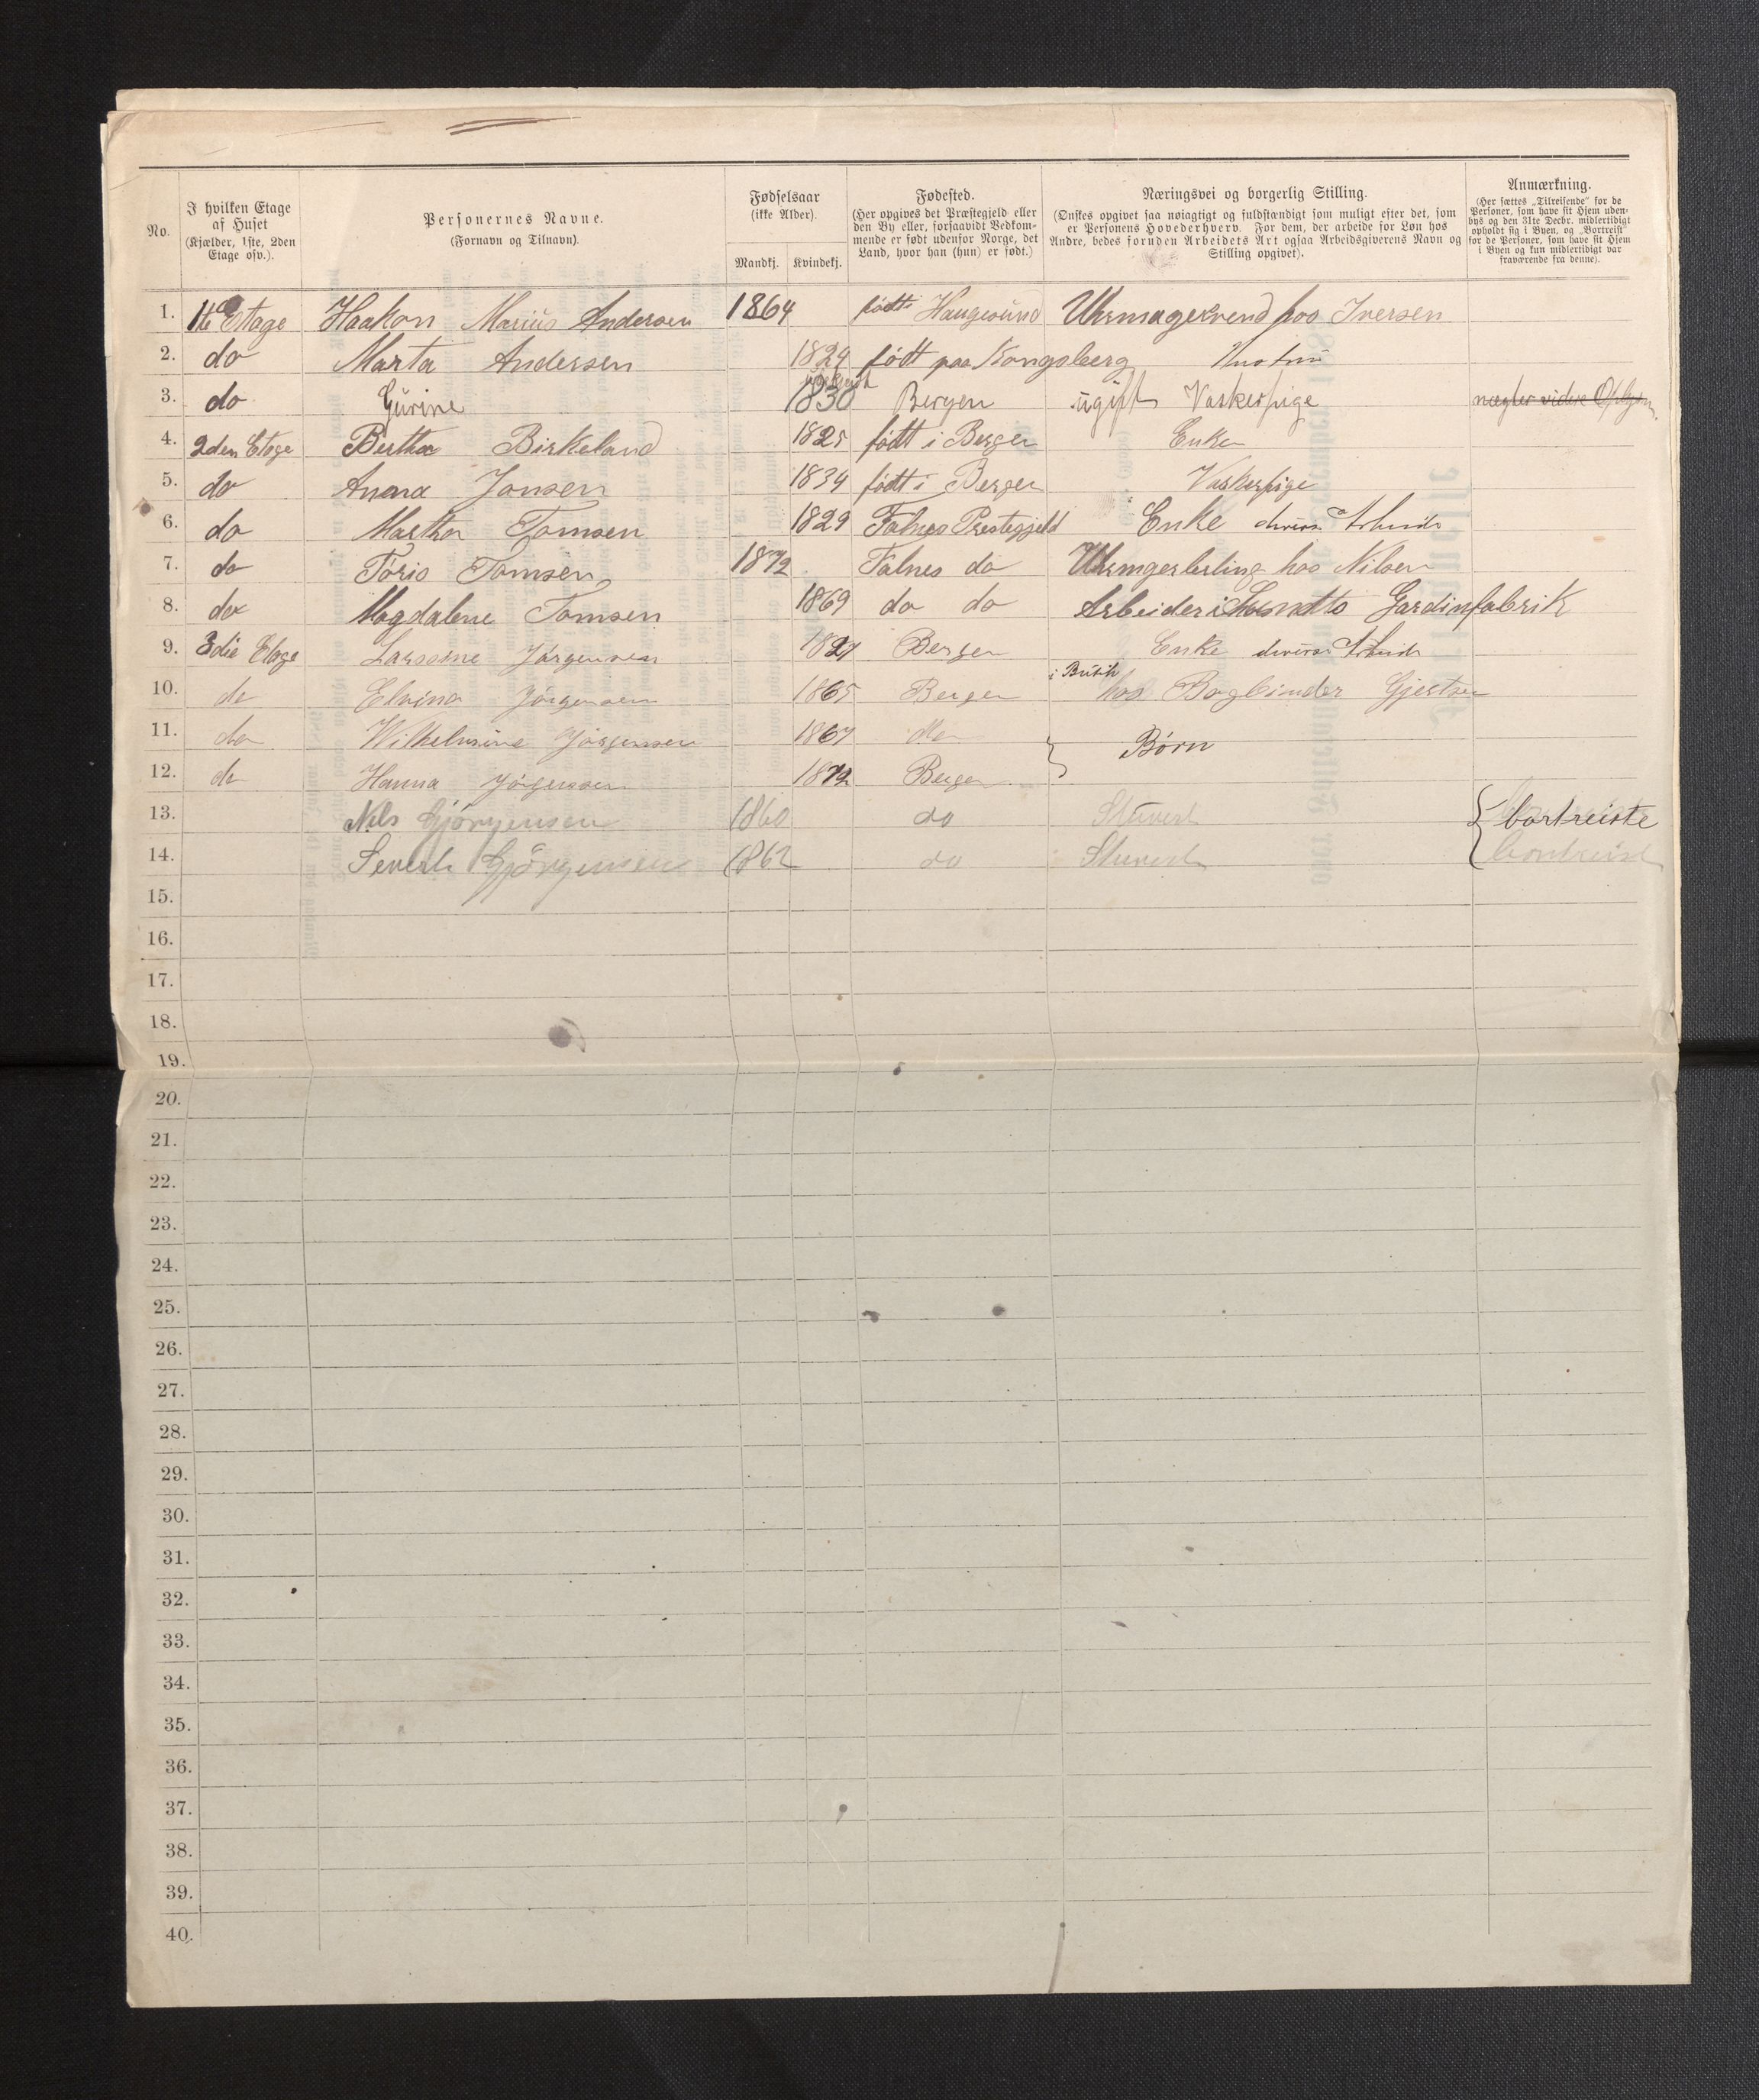 No.
I hvilken Etage af Huset (Kjælder, 1ste, 2den Etage osv.).
Personernes Navne. (Fornavn og Tilnavn).
Fødselsaar (ikke Alder). Mandkj. Kvindekj.
Fødested. (Her opgives det Præstegjeld eller den By eller, forsaavidt Vedkommende er født udenfor Norge, det Land, hvor han (hun) er født.)
Næringsvei og borgerlig Stilling. (Ønskes opgivet saa nøiagtigt og fuldstændigt som muligt efter det, som er Personens Hovederhverv. For dem, der arbeide for Løn hos Andre, bedes foruden Arbeidets Art ogsaa Arbeidsgiverens Navn og Stilling opgivet).
Anmærkning. (Her sættes „Tilreisende" for de Personer, som have sit Hjem udenbys og den 31te Decbr. midlertidigt opholdt sig i Byen, og „Bortreist" for de Personer, som have sit Hjem i Byen og kun midlertidigt var fraværende fra denne).
1. 1te Etage Haakon Marius Andersen 1864 født i Haugesund Uhrmagersvend hos Iversen
2. do Marta Andersen 1824 født paa Kongsberg Hustru
3. do Gurine 1830 Bergen ugift Vaskepige nægter videre
4. 2den Etage Birtha Birkeland 1825 født i Bergen Enke
5. do Anna Jonsen 1834 født i Bergen Vaskepige
6. do Martha Tomsen 1829 Falnes Prestegjeld Enke diverse Arbeide
7. do Toris Tomsen 1872 Falnes do Uhrmgerlerling hos Nilsen
8. do Magdalene Tomsen 1869 do do Arbeider i Gardinfabrik
9. 3die Etage Larsine Jørgensen 1827 Bergen Enke diverse Arbeide
10. do Elvina Jørgensen 1865 Bergen i Butik hos Bogbinder Gjertsen
11. do Wilhelmine Jørgensen 1867 do
} Børn
12. do Hanna Jørgensen 1872 Bergen
13. Nils Gjørgensen 1860 do Stuvert { bortreiste
14. Severh Gjørgensen 1862 do Stuvert bortreist
15.
16.
17.
18.
19.
20.
21.
22.
23.
24.
25.
26.
27.
28.
29.
30.
31.
32.
33.
34.
35.
36.
37.
38.
39.
40.